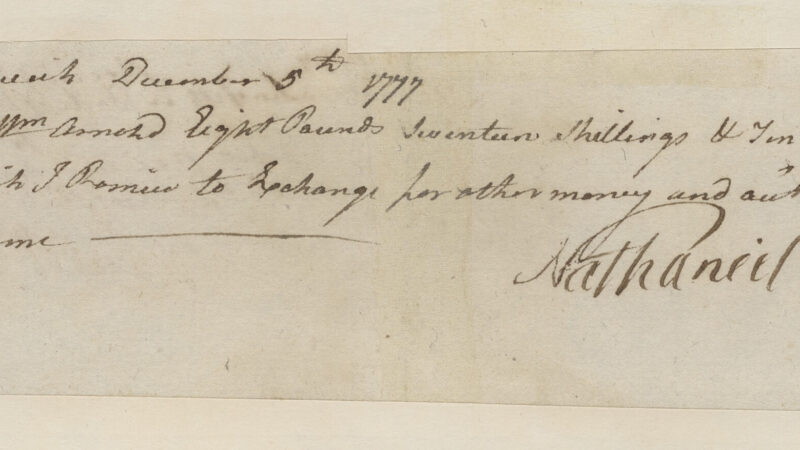 December 5th 1777
Wm Arnold Eight Pounds Seventeen Shillings & Ten
I Promise to Exchange for other money and
me
Nathaniel